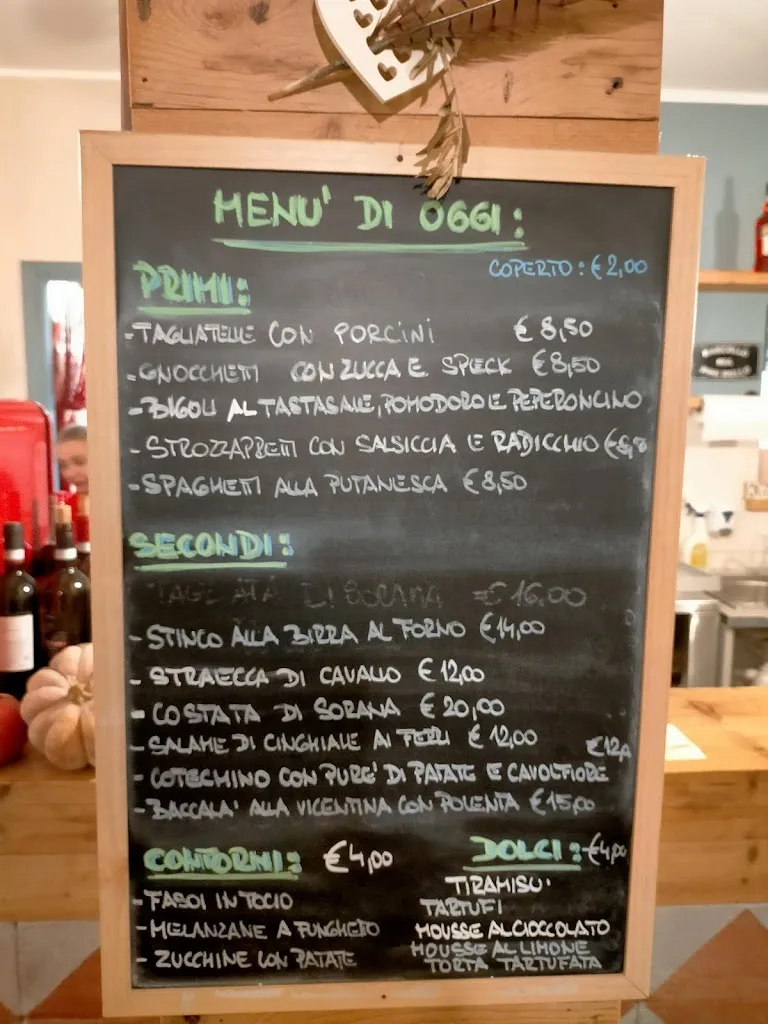 MENU' DI OGGI:
COPERTO: €2,00
PRIMI:
-TAGLIATELLE CON PORCINI €8,50
-GNOCCHETTI CON ZUCCA E SPECK €8,50
-BIGOLI AL TASTASALE, POMODORO E PEPERONCINO
-STROZZAPRETI CON SALSICCIA E RADICCHIO
-SPAGHETTI ALLA PUTANESCA €8,50
SECONDI:
TAGLIATA DI SORANA €16.00
-STINCO ALLA BIRRA AL FORNO €14,00
-STRAECCA DI CAVALLO €12,00
-COSTATA DI SORANA €20,00
-SALAME DI CINGHIALE AI FERRI €12,00
-COTECHINO CON PURE' DI PATATE E CAVOLFIORE €12,00
-BACCALA' ALLA VICENTINA CON POLENTA €15,00
CONTORNI: €4,00
-FASOI IN TOCIO
-MELANZANE A FUNGHETO
-ZUCCHINE CON PATATE
DOLCI: €4,00
TIRAMISU'
TARTUFI
MOUSSE AL CIOCCOLATO
MOUSSE AL LIMONE
TORTA TARTUFATA